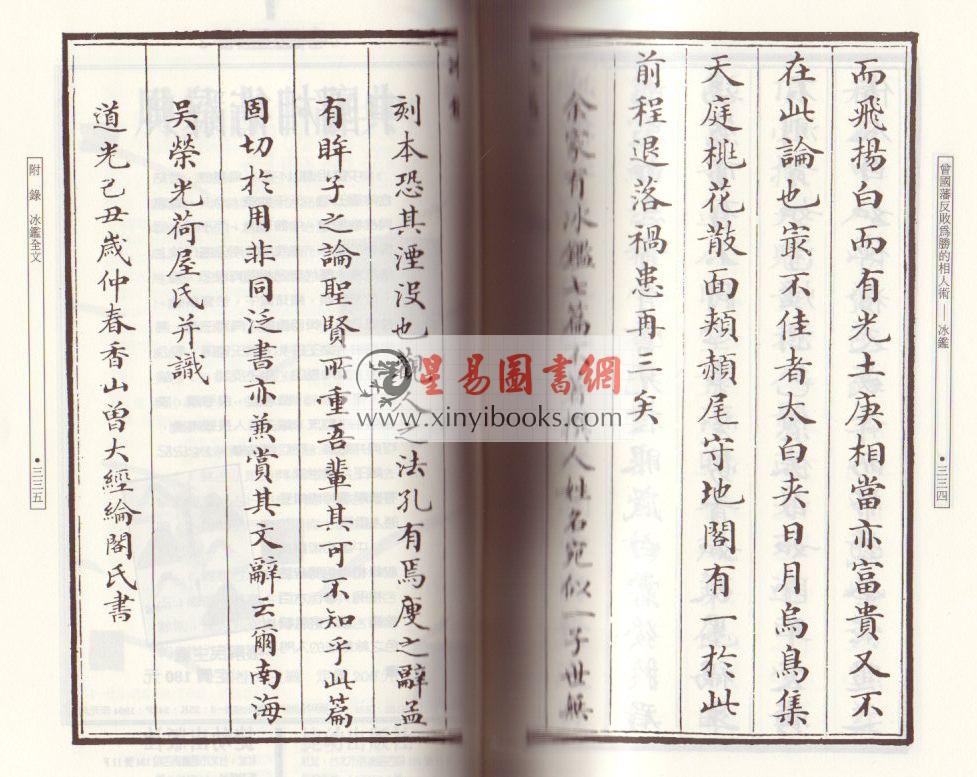 曾國藩反敗爲勝的相人術── 冰鑑
•三三四
而飛揚白而有光土庚相當亦富貴又不
在此論也㝡不佳者太白夾日月烏鳥集
天庭桃花散面頰頳尾守地閣有一於此
前程退落禍患再三矣
余家有冰鑑七篇不人姓名宛似一子世無
刻本恐其湮没也觀人之法孔有焉廋之辭孟
有眸子之論聖賢所重吾輩其可不知乎此篇
固切於用非同泛書亦兼賞其文辭云爾南海
吳榮光荷屋氏并識
道光己丑歲仲春香山曾大經綸閣氏書
附錄 冰鑑全文
•三三五
星易圖書網
www.xinyibooks.com